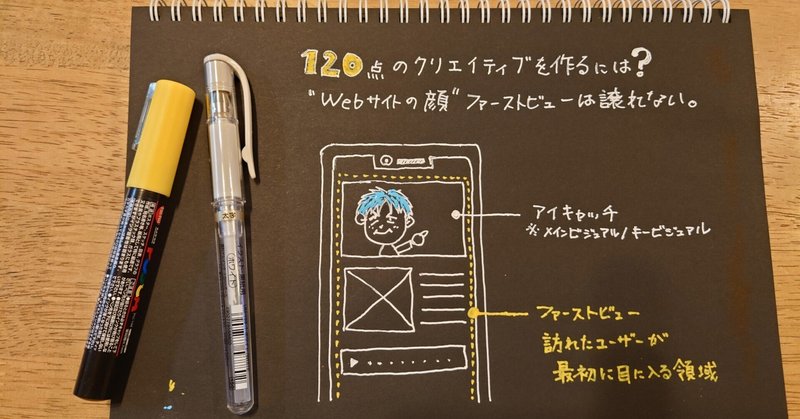 120点のクリエイティブを作るには?
"Webサイトの顔"ファーストビューは譲れない。
アイキャッチ
※メインビジュアル/キービジュアル
ファーストビュー
訪れたユーザーが
最初に目に入る領域
太字
(ホワイト)